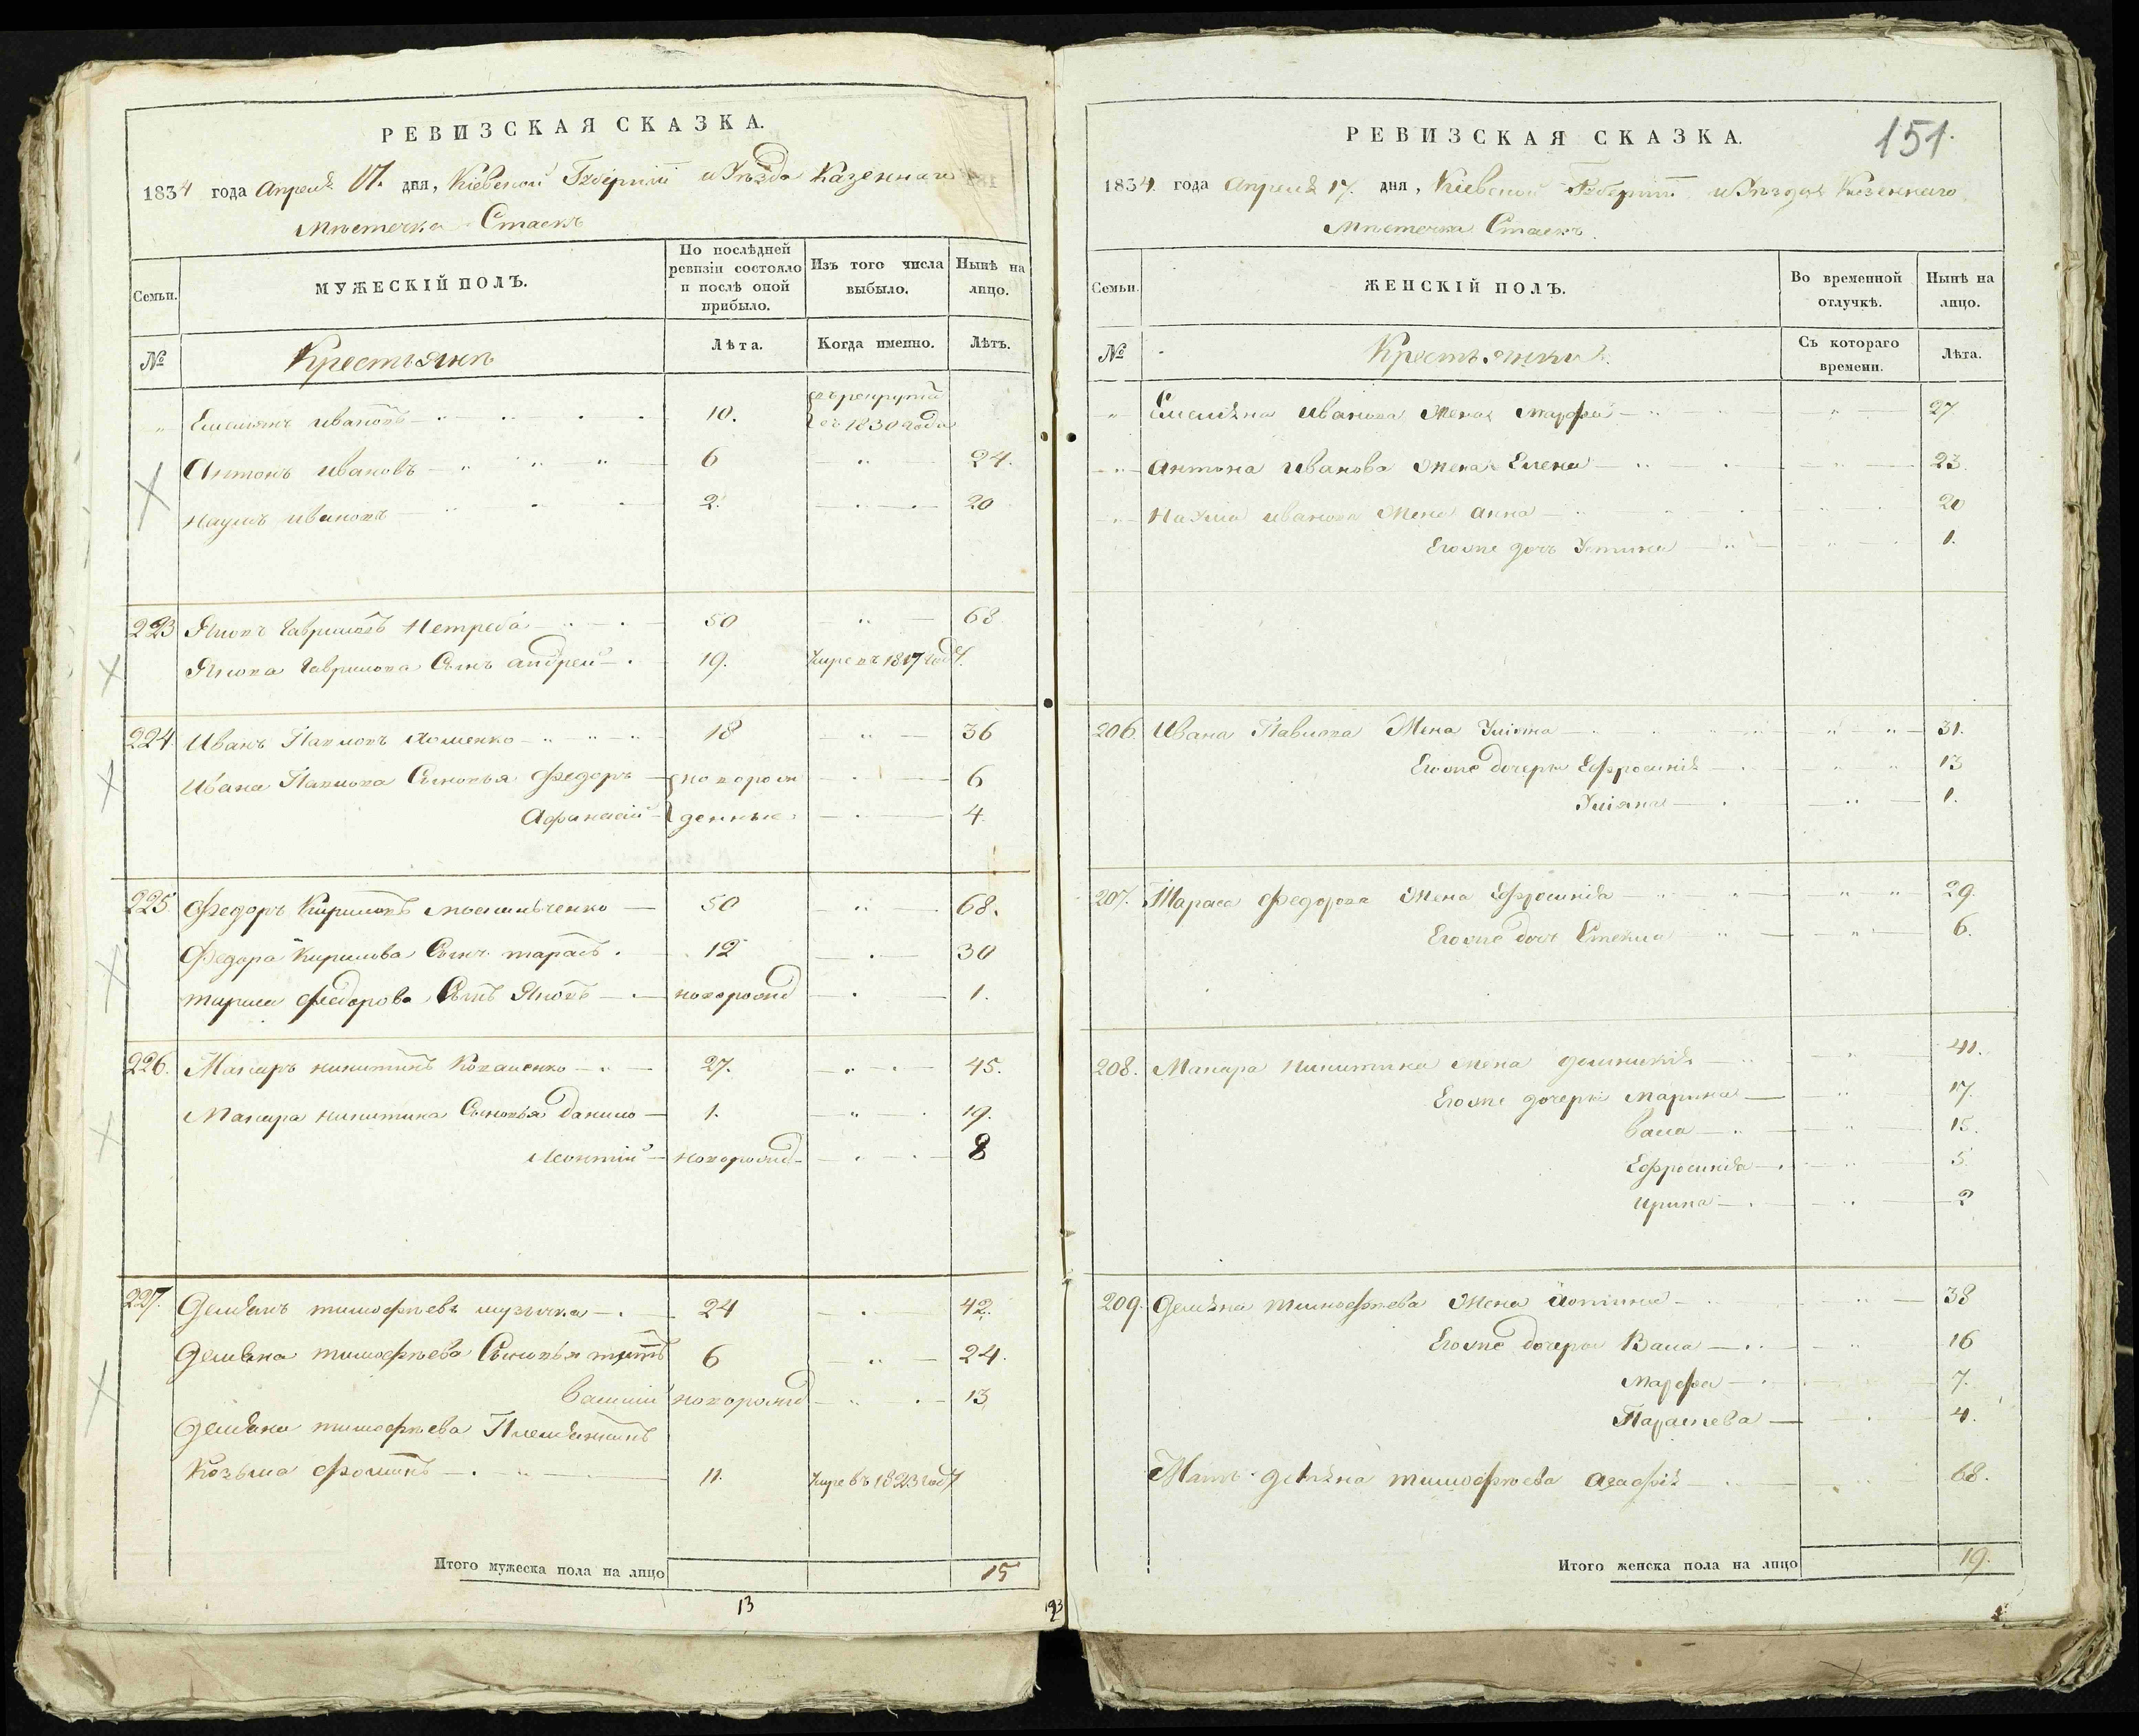 РЕВИЗСКАЯ СКАЗКА.
1834 года Апреля 17. дня, Кіевской Губерніи и Уѣзда Казеннаго
Мѣстечка Стаекъ
Семьи. МУЖЕСКІЙ ПОЛЪ. По послѣдней ревизіи состояло и послѣ оной прибыло. Изъ того числа выбыло. Нынѣ на лицо.
№ Крестьянѣ Лѣта. Когда именно. Лѣтъ.
„ Емелянъ Ивановъ 10. въ 1830 года
Антонъ Ивановъ 6 24.
Наумъ Ивановъ 2. 20
223 Яковъ Гавриловъ Нетреба 50 68
Якова Гаврилова Сынъ Андрей 19. Умре въ 1817 году.
224. Иванъ Павловъ 18 36
Ивана Павлова Сыновья Федоръ новорож 6
Афанасій денные 4.
225. Федоръ Кириловъ 50 68.
Федора Кирилова Сынъ Тарасъ. 12 30
Тараса Федорова Сынъ Яковъ новорожд 1.
226. Макаръ Никитинъ Коваленко 27. 45.
Макара Никитина Сыновья Данило 1. 19.
Леонтій новорожд 8
227. Демянъ Тимофѣевъ Музычка 24 42.
Демяна Тимофѣева Сыновья Титъ 6 24.
Василій новорожд 13
Демяна Тимофѣева Племянникъ
Козьма Фоминъ 11. Умре въ 1823 году
Итого мужеска пола на лицо 15
13
193
151.
РЕВИЗСКАЯ СКАЗКА.
1834. года Апреля 17. дня, Кіевской Губерніи и Уѣзда Казеннаго
Мѣстечка Стаекъ.
Семьи. ЖЕНСКІЙ ПОЛЪ. Во временной отлучкѣ. Нынѣ на лицо.
№ Крестьянки. Съ котораго времени. Лѣта.
„ Емеляна Иванова Жена Марфа 27
Антона Иванова Жена Елена 23.
Наума Иванова Жена Анна 20
Егоже дочь Устина 1.
206. Ивана Павлова Жена 31.
Егоже дочери Ефросинія 13
Уліяна 1.
207. Тараса Федорова Жена Ефросинія 29.
Егоже дочь 6.
208. Макара Никитина Жена Домникія 41.
Егоже дочери Марина 17.
Васа 15.
Ефросинія 5.
Ирина 2
209. Демяна Тимофѣева Жена 38
Егоже дочери Васа 16
Марфа 7.
Парасковія 4.
Мать Демяна Тимофѣева Агафія 68.
Итого женска пола на лицо 19.